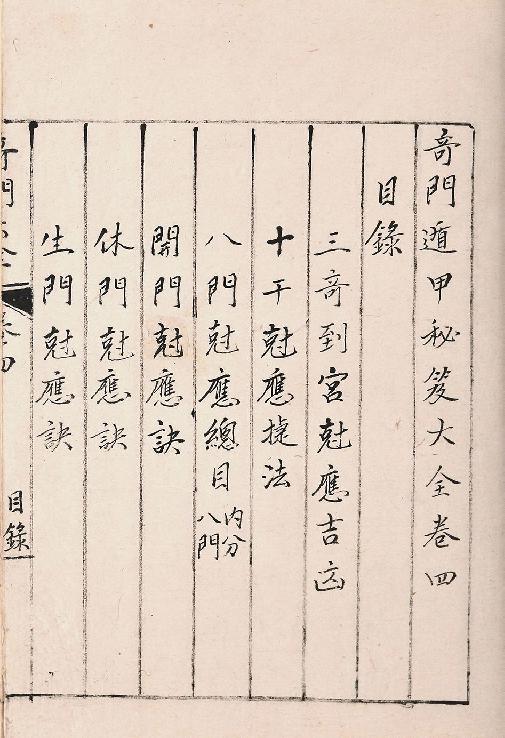 奇門遁甲秘笈大全卷四
目錄
三奇到宮尅應吉凶
十干尅應捷法
八門尅應總目 內分八門
開門尅應訣
休門尅應訣
生門尅應訣
目錄